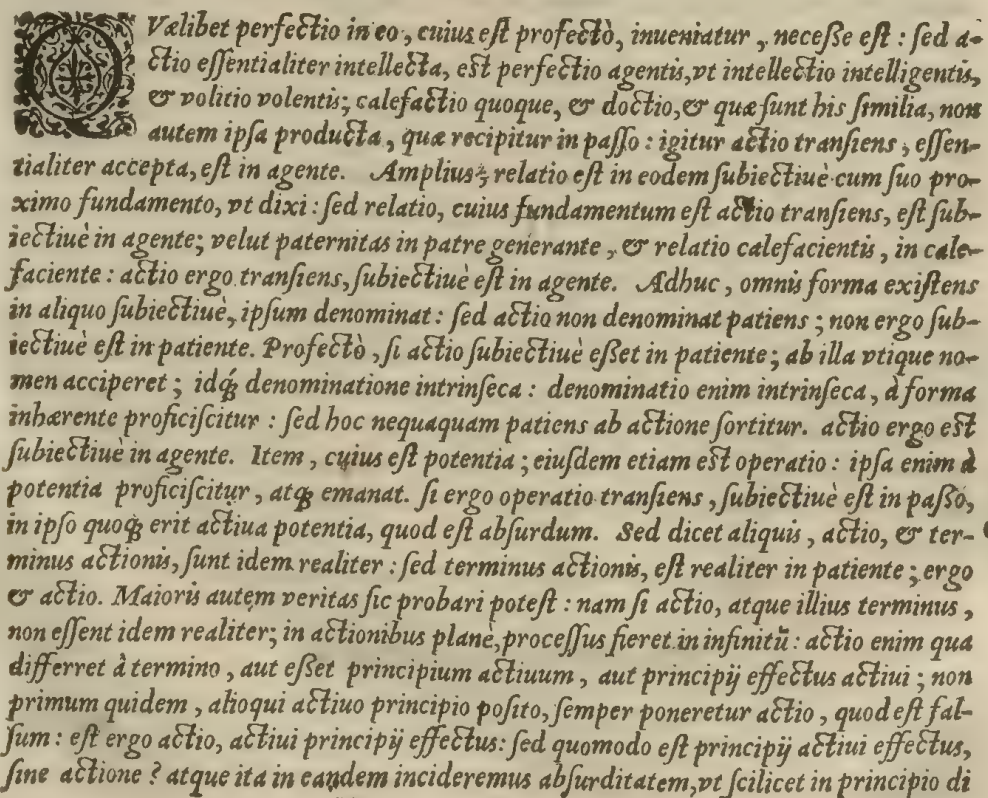 QVælibet perfectio in eo, cuius eſt profectò, inueniatur, neceſſe eſt: ſed a-
ctio eſſentialiter intellecta, eſt perfectio agentis, vt intellectio intelligentis,
& volitio volentis; calefactio quoque, & doctio, & quæ ſunt his ſimilia, non
autem ipſa producta, quæ recipitur in paſſo: igitur actio tranſiens, eſſen-
tialiter accepta, eſt in agente. Amplius, relatio eſt in eodem ſubiectiuè cum ſuo pro-
ximo fundamento, vt dixi: ſed relatio, cuius fundamentum eſt actio tranſiens, eſt ſub-
iectiuè in agente; velut paternitas in patre generante, & relatio calefacientis, in cale-
faciente: actio ergo tranſiens, ſubiectiuè eſt in agente. Adhuc, omnis forma exiſtens
in aliquo ſubiectiuè, ipſum denominat: ſed actio non denominat patiens; non ergo ſub-
iectiuè eſt in patiente. Profectò, ſi actio ſubiectiuè eſſet in patiente; ab illa vtique no-
men acciperet; idq́; denominatione intrinſeca: denominatio enim intrinſeca, à forma
inhærente proficiſcitur: ſed hoc nequaquam patiens ab actione ſortitur. actio ergo eſt
ſubiectiuè in agente. Item, cuius eſt potentia; eiuſdem etiam eſt operatio: ipſa enim à
potentia proficiſcitur, atq́; emanat. ſi ergo operatio tranſiens, ſubiectiuè eſt in paſſo,
in ipſo quoq́; erit actiua potentia, quod eſt abſurdum. Sed dicet aliquis, actio, & ter-
minus actionis, ſunt idem realiter: ſed terminus actionis, eſt realiter in patiente; ergo
& actio. Maioris autem veritas ſic probari poteſt: nam ſi actio, atque illius terminus,
non eſſent idem realiter; in actionibus planè, proceſſus fieret in infinitũ: actio enim qua
differret à termino, aut eſſet principium actiuum, aut principij effectus actiui; non
primum quidem, alioqui actiuo principio poſito, ſemper poneretur actio, quod eſt fal-
ſum: eſt ergo actio, actiui principij effectus: ſed quomodo eſt principij actiui effectus,
ſine actione? atque ita in eandem incideremus abſurditatem, vt ſcilicet in principio di